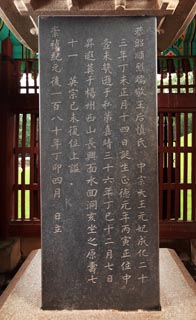 恭昭順烈端敬王后愼氏 中宗大王元妃成化二十
三年丁未正月十四日誕生正德元年丙寅正位中
壼未幾遜于私第嘉靖三十六年丁巳十二月七日
昇遐葬于楊州西山長興面水回洞亥坐之原壽七
十一 英宗己未復位上謚
崇禎紀元後一百八十年丁卯四月 日立